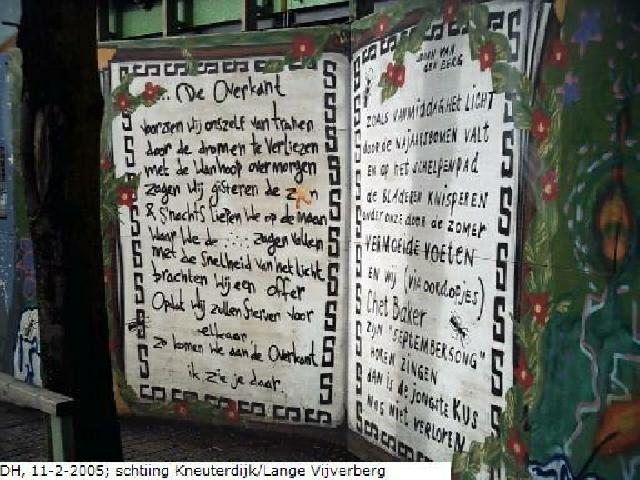 ... De Overkant
voorzien wij onszelf van tranen
door de dromen te verliezen
met de wanhoop overmorgen
zagen wij gisteren de z n
& s'nachts liepen we op de maan
waar we de .... zagen vallen
met de snelheid van het licht
brachten wij een offer
Opdat wij zullen sterven voor
elkaar
zo komen we aan de Overkant
ik zie je daar..
JOHN VAN
DEN BERG
ZOALS VANMIDDAG HET LICHT
DOOR DE NAJAARSBOMEN VALT
EN OP HET SCHELPENPAD
de BLADEREN KNISPEREN
onder onze door de zomer
VERMOEIDE VOETEN
EN WIJ (via oordopjes)
Chet Baker
ZIJN "SEPTEMBERSONG"
HOREN ZINGEN
DAN IS DE JONGSTE KUS
NOG NIET VERLOREN
DH, 11-2-2005; schtiing Kneuterdijk/Lange Vijverberg